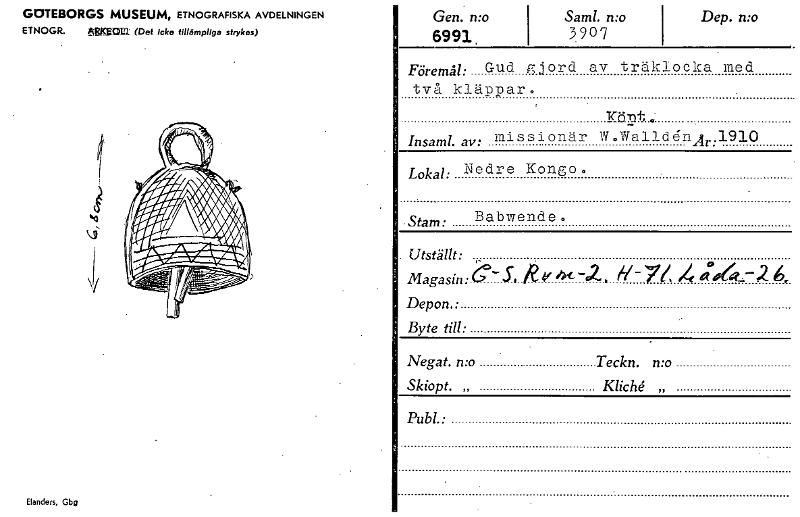 GÖTEBORGS MUSEUM, ETNOGRAFISKA AVDELNINGEN
ETNOGR. ARKEOL. (Det icke tillämpliga strykes)
6,8 cm
Elanders, Gbg
Gen. n:o Saml. n:o Dep. n:o
6991 3907
Föremål: Gud gjord av träklocka med
två kläppar.
Köpt.
Insaml. av: missionär W.Walldén År: 1910
Lokal: Nedre Kongo.
Stam: Babwende.
Utställt:
Magasin: G-S. Rum-2. H-71. Låda-26.
Depon.:
Byte till:
Negat. n:o Teckn. n:o
Skiopt. „ Kliché „
Publ.: